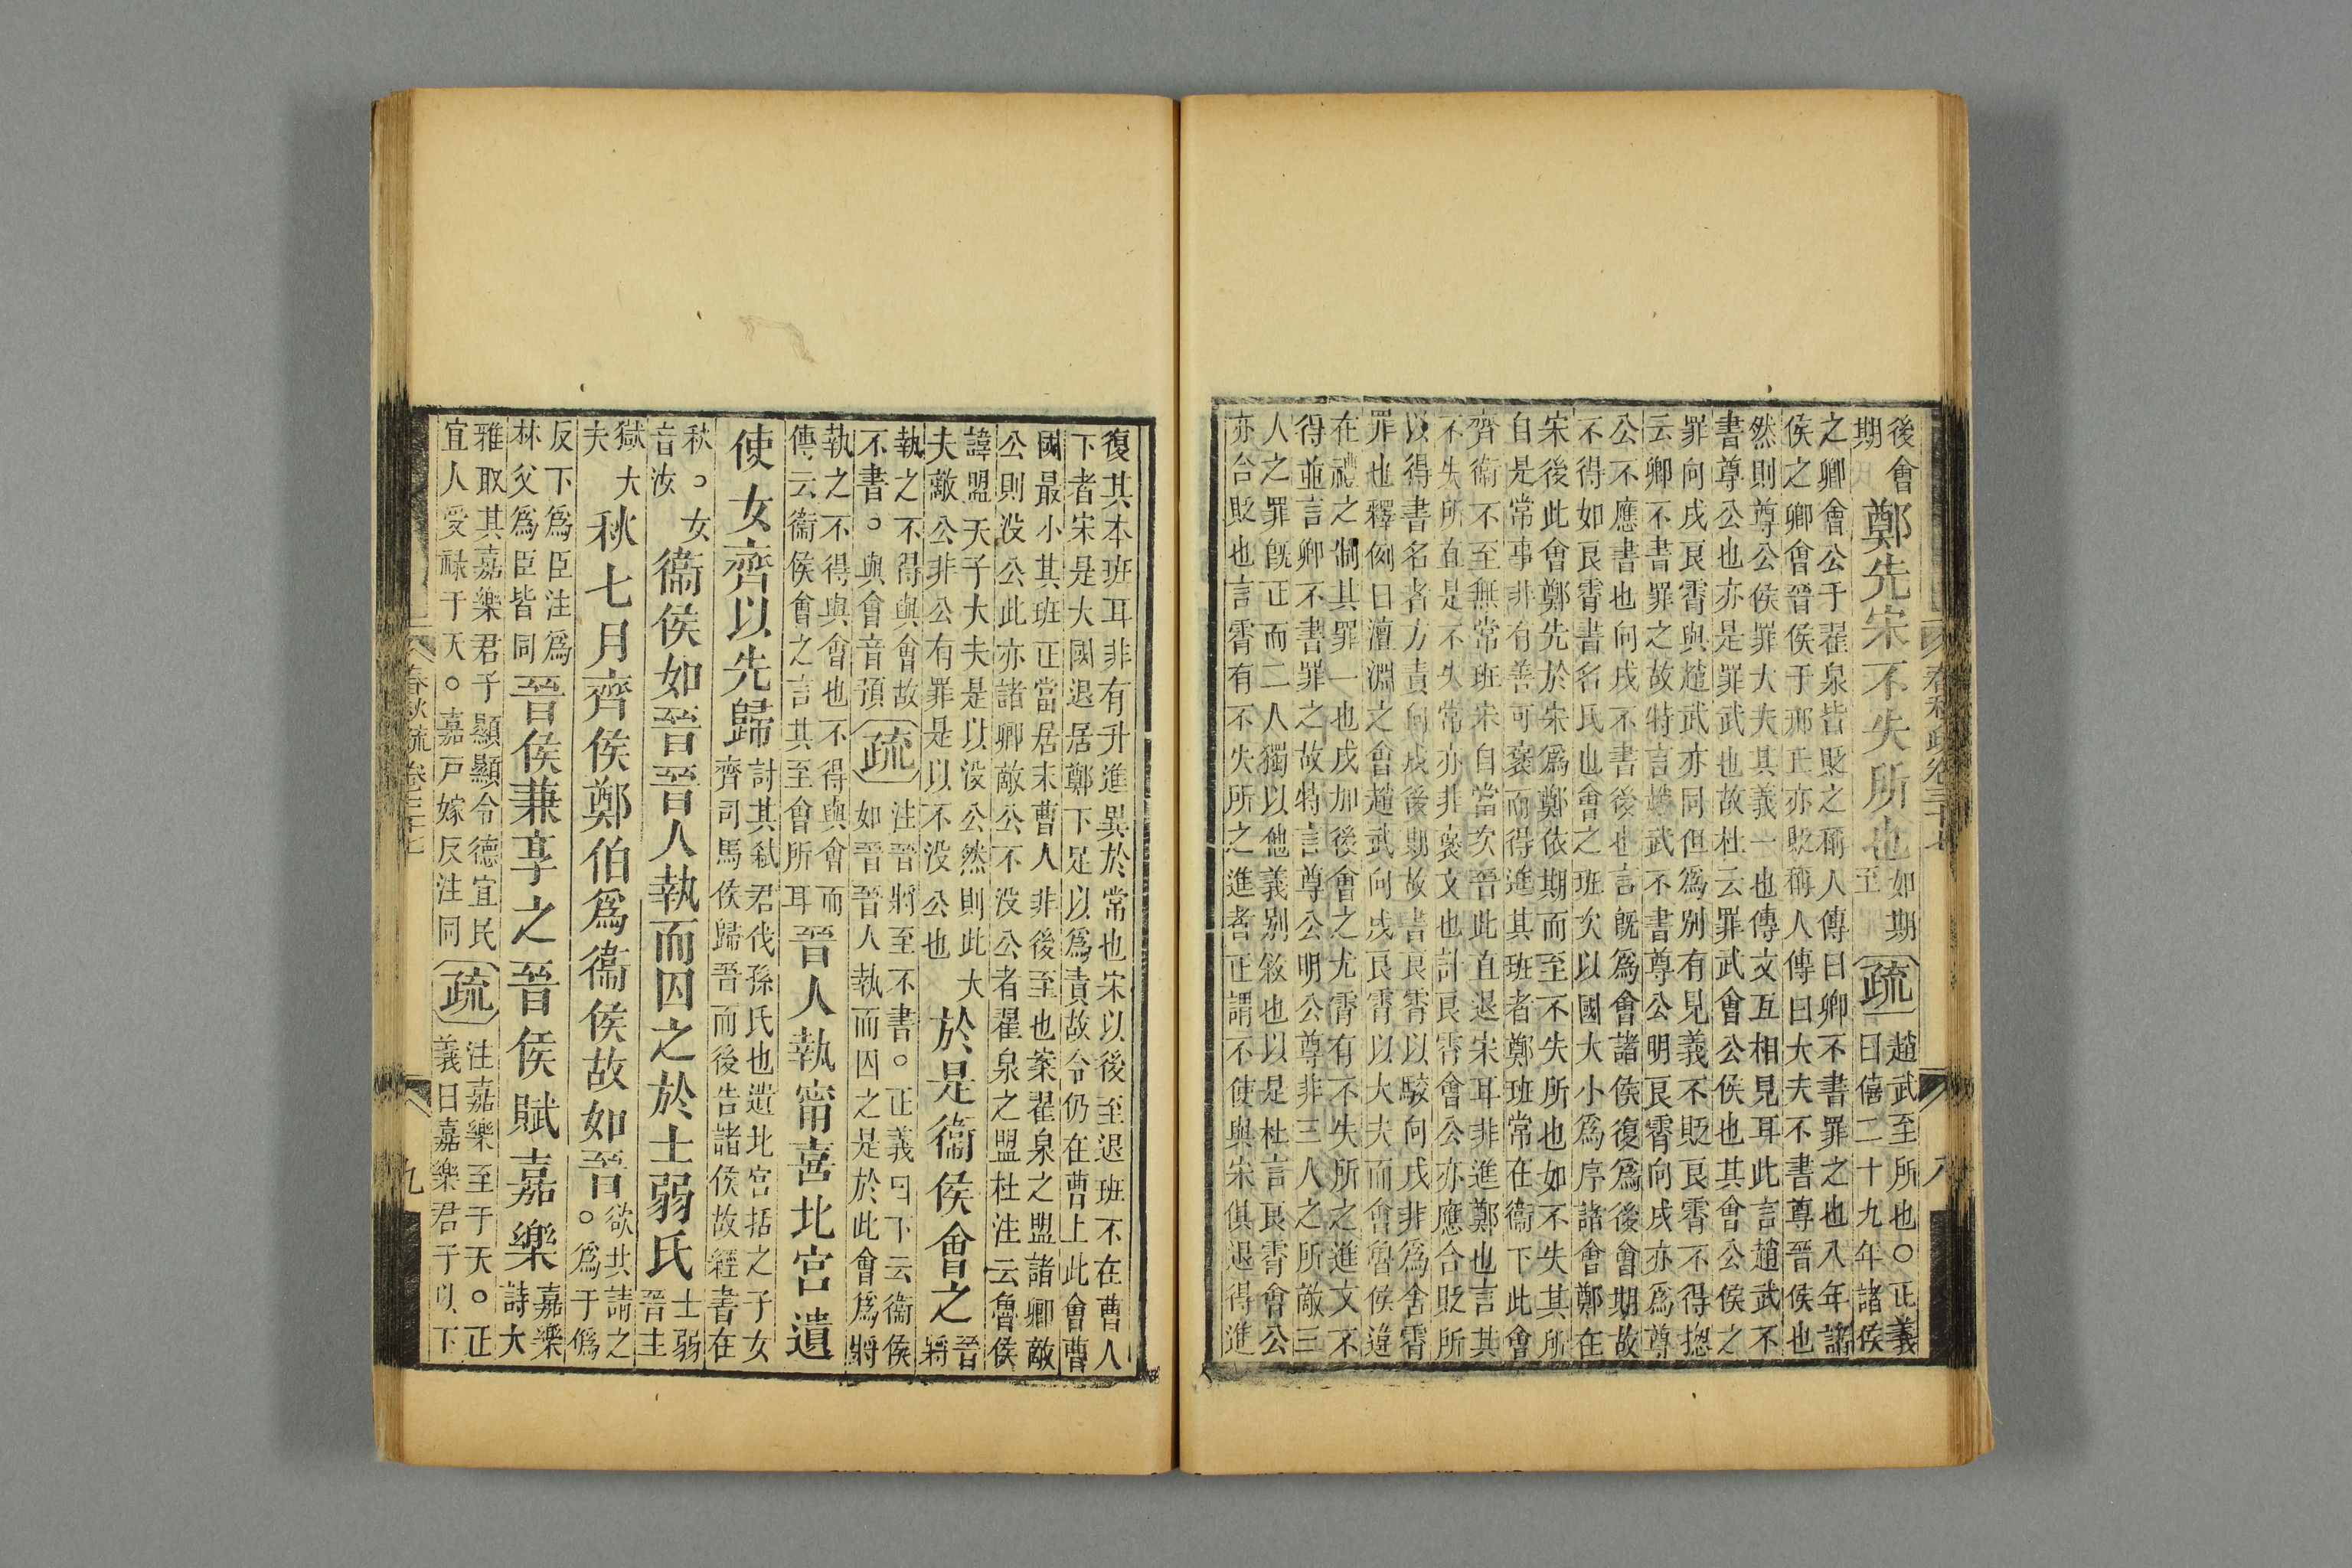 後會
期
鄭先宋不失所也
如期
至
疏
趙武至所也○正義
曰僖二十九年諸侯
之卿會公于翟泉皆貶之稱人傳曰卿不書罪之也八年諸
侯之卿會晉侯于邢丘亦貶稱人傳曰大夫不書尊晉侯也
然則尊公侯罪大夫其義一也傳文互相見耳此言趙武不
書尊公也亦是罪武也故杜云罪武會公侯也其會公侯之
罪向戌良霄與趙武亦同但為別有見義不貶良霄不得揔
云卿不書罪之故特言趙武不書尊公明良霄向戌亦為尊
公不應書也向戌不書後也言旣為會諸侯復為後會期故
不得如良霄書名氏也會之班次以國大小為序諸會鄭在
宋後此會鄭先於宋為鄭依期而至不失所也如不失其所
自是常事非有善可褒而得進其班者鄭班常在衞下此會
齊衞不至無常班宋自當次晉此直退宋耳非進鄭也言其
不失所直是不失常亦非褒文也討良霄會公亦應合貶所
以得書名者方責向戌後期故書良霄以駮向戌非為舍霄
罪也釋例曰澶淵之會趙武向戌良霄以大夫而會魯侯違
在禮之制其罪一也戌加後會之尤霄有不失所之進文不
得並言卿不書罪之故特言尊公明公尊非三人之所敵三
人之罪旣正而二人獨以他義別敘也以是杜言良霄會公
亦合貶也言霄有不失所之進者正謂不使與宋俱退得進
復其本班耳非有升進異於常也宋以後至退班不在曹人
下者宋是大國退居鄭下足以為責故令仍在曹上此會曹
國最小其班正當居末曹人非後至也案翟泉之盟諸卿敵
公則没公此亦諸卿敵公不没公者翟泉之盟杜注云魯侯
諱盟天子大夫是以没公然則此大
夫敵公非公有罪是以不没公也
於是衞侯會之
晉
將
執之不得與會故
不書。與會音預
疏
注晉將至不書。正義曰下云衞侯
如晉晉人執而囚之是於此會為將
執之不得與會也不得與會而
傳云衞侯會之言其至會所耳
晉人執甯喜北宮遺
使女齊以先歸
討其弑君伐孫氏也遺北宮括之子女
齊司馬侯歸晉而後告諸侯故經書在
秋。女
音汝
衞侯如晉晉人執而囚之於士弱氏
士弱
晉主
獄大
夫
秋七月齊侯鄭伯為衞侯故如晉
欲共請之
。為于僞
反下為臣注為
林父為臣皆同
晉侯兼享之晉侯賦嘉樂
嘉樂
詩大
雅取其嘉樂君子顯顯令德宜民
宜人受祿于天。嘉戸嫁反注同
疏
注嘉樂至于天。正
義曰嘉樂君子以下